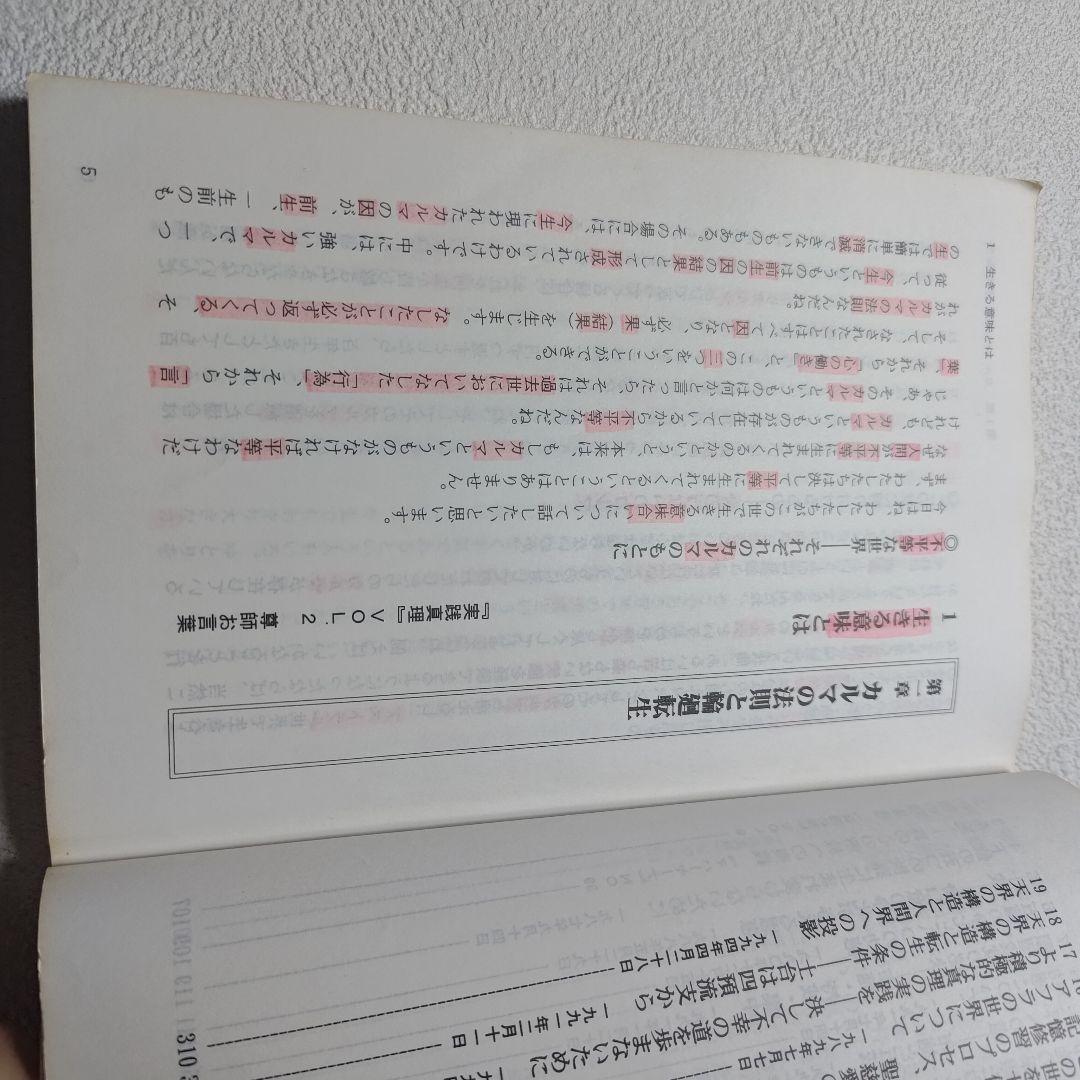 第一章 カルマの法則と輪廻転生
1 生きる意味とは
『実践真理』VOL.2 尊師お言葉
◎不平等な世界――それぞれのカルマのもとに
今日はね、わたしたちがこの世で生きる意味合いについて話したいと思います。
まず、わたしたちは決して平等に生まれてくるということはありません。
なぜ人間が不平等に生まれてくるのかというと、本来は、もしカルマというものがなければ平等なわけだ
けれども、カルマというものが存在しているから不平等なんだね。
じゃあ、そのカルマというものは何かと言ったら、それは過去世においてなした「行為」、それから「言
葉」、それから「心の働き」と、この三つをいうことができる。
そして、なされたことはすべて因となり、必ず果（結果）を生じます。なしたことが必ず返ってくる、そ
れがカルマの法則なんだね。
従って、今生というものは前生の因の結果として形成されているわけです。中には、強いカルマで、一つ
の生では簡単に消滅できないものもある。その場合には、今生に現われたカルマの因が、前生、一生前のも
1 生きる意味とは
5
記憶修習のプロセス、聖慈愛
アプラの世界について 一九八九年七月七日
17 より積極的な真理の実践を――決して不幸の道を歩まないために
18 天界の構造と転生の条件――土台は四預流支から 一九九一年二月十一日
19 天界の構造と人間界への投影 一九九四年四月二十八日
310